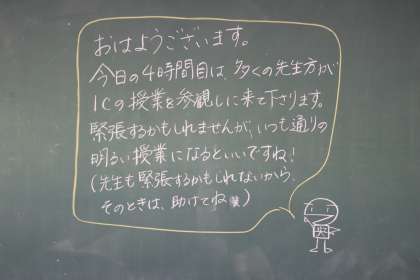 おはようございます。
今日の4時間目は、多くの先生方が
1Cの授業を参観しに来て下さります。
緊張するかもしれませんが、いつも通りの
明るい授業になるといいですね!
(先生も緊張するかもしれないから、
そのときは、助けてね笑)